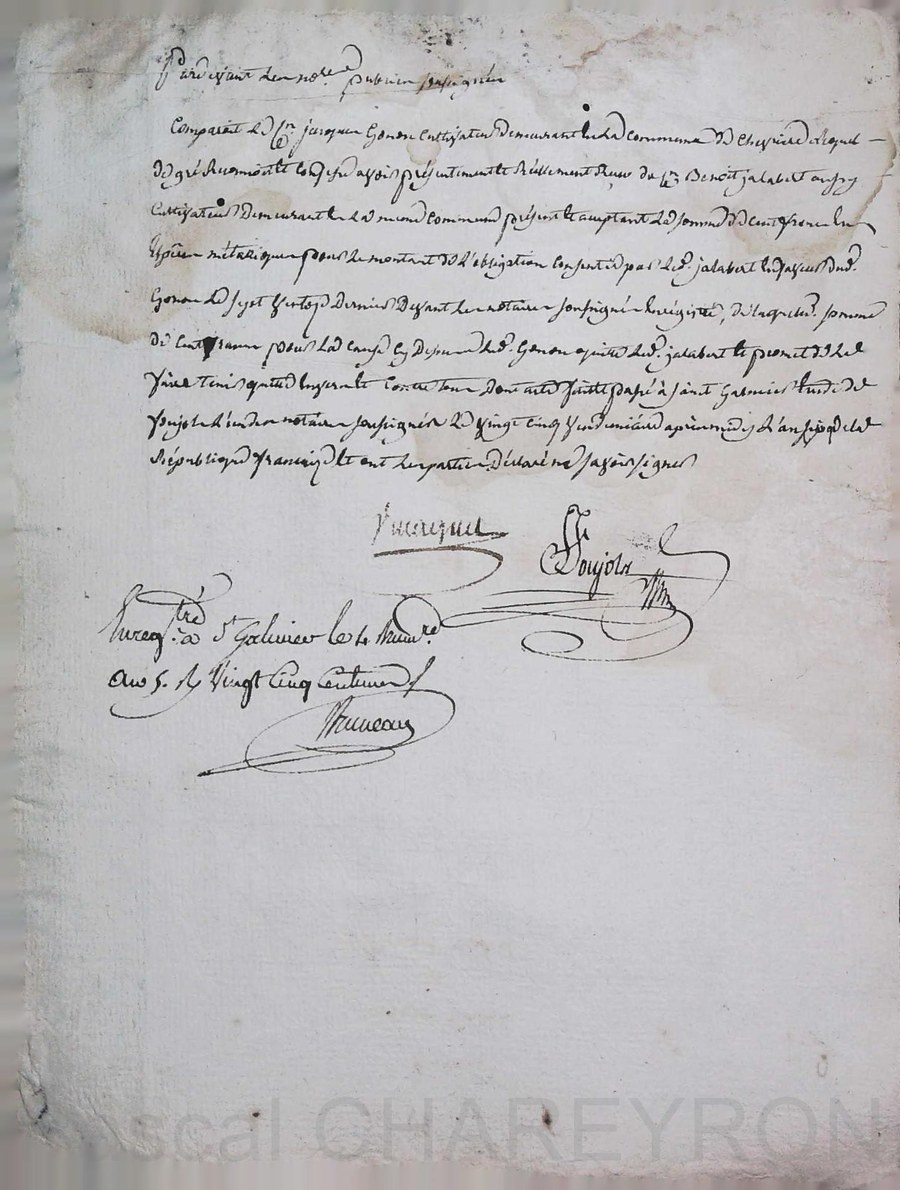 Pardevant les no.res publics soussignés
Comparait le C.en jacques Gonon Cultivateur demeurant en la commune de Chevrieres lequel
de gré Reconnoit et confesse avoir présentement et Réellement Reçu du C.en Benoit jalabert aussy
Cultivateur demeurant en la meme commune présent et acceptant la somme de cent francs en
Espèces métalliques pour le montant de l'obligation consentie par led. jalabert en faveur dud.
Gonon le sept dernier devant les notaires soussignés Enrégistré, de laquelle somme
de Cent francs pour la cause cy dessus led. Gonon quitte led. jalabert et promet de le
faire tenir quitte Envers et Contre tous dont acte fait et passé à saint Galmier Etude de
Poujols l'un des notaires soussignés le vingt cinq Vendemiaire après midy l'an de la
République française et ont les parties déclaré ne savoir signer
Poujols
Enreg.tré à S.t Galmier le 4
an 5. R vingt cinq centimes
Bruneau
Pascal CHAREYRON